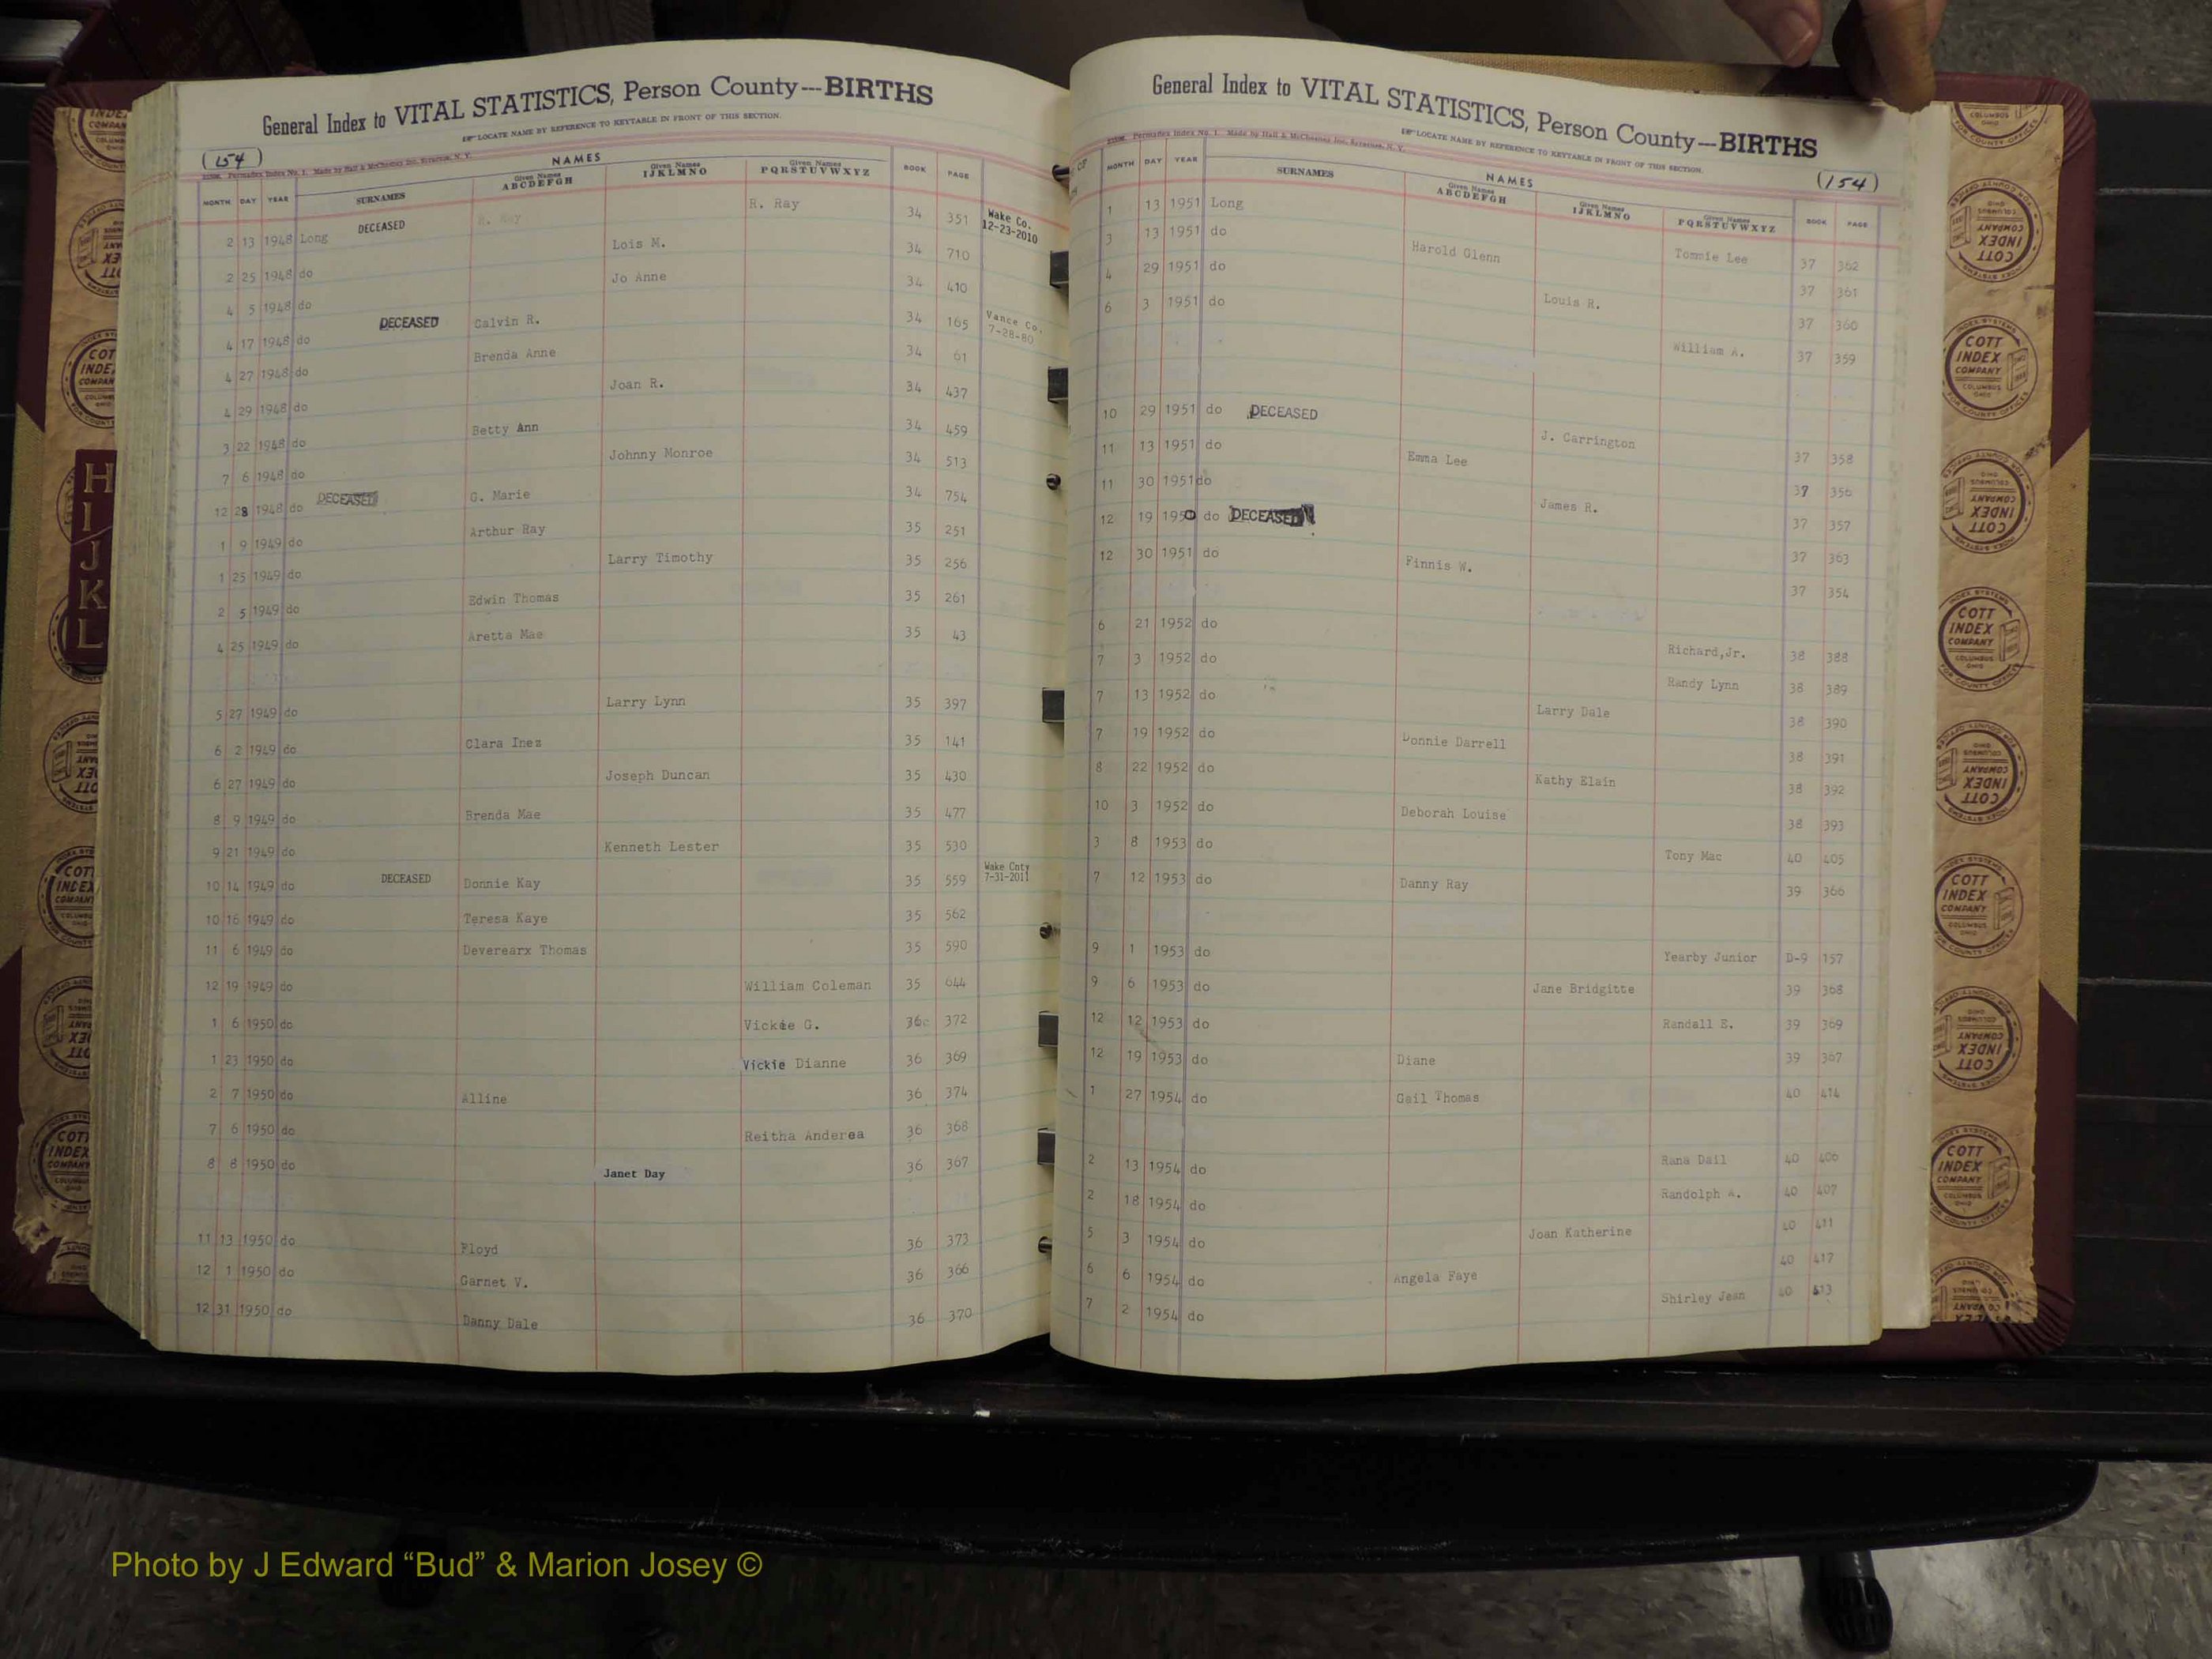 General Index to VITAL STATISTICS, Person County---BIRTHS
LOCATE NAME BY REFERENCE TO KEYTABLE IN FRONT OF THIS SECTION.
(154)
Permaflex Index No. 1. Made by Hall & McChesney Inc. Syracuse, N. Y.
NAMES
MONTH DAY YEAR SURNAMES Given Names ABCDEFGH Given Names IJKLMNO Given Names PQRSTUVWXYZ BOOK PAGE
2 13 1948 Long DECEASED R. Ray R. Ray 34 351 Wake Co. 12-23-2010
2 25 1948 do Lois M. 34 710
4 5 1948 do Jo Anne 34 410
4 17 1948 do DECEASED Calvin R. 34 165 Vance Co. 7-28-80
4 27 1948 do Brenda Anne 34 61
4 29 1948 do Joan R. 34 437
3 22 1948 do Betty Ann 34 459
7 6 1948 do Johnny Monroe 34 513
12 28 1948 do DECEASED G. Marie 34 754
1 9 1949 do Arthur Ray 35 251
1 25 1949 do Larry Timothy 35 256
2 5 1949 do Edwin Thomas 35 261
4 25 1949 do Aretta Mae 35 43
5 27 1949 do Larry Lynn 35 397
6 2 1949 do Clara Inez 35 141
6 27 1949 do Joseph Duncan 35 430
8 9 1949 do Brenda Mae 35 477
9 21 1949 do Kenneth Lester 35 530
10 14 1949 do DECEASED Donnie Kay 35 559 Wake Cnty 7-31-2011
10 16 1949 do Teresa Kaye 35 562
11 6 1949 do Deverearx Thomas 35 590
12 19 1949 do William Coleman 35 644
1 6 1950 do Vickie G. 36 372
1 23 1950 do Vickie Dianne 36 369
2 7 1950 do Alline 36 374
7 6 1950 do Reitha Anderea 36 368
8 8 1950 do Janet Day 36 367
11 13 1950 do Floyd 36 373
12 1 1950 do Garnet V. 36 366
12 31 1950 do Danny Dale 36 370
General Index to VITAL STATISTICS, Person County---BIRTHS
LOCATE NAME BY REFERENCE TO KEYTABLE IN FRONT OF THIS SECTION.
(154)
Permaflex Index No. 1. Made by Hall & McChesney Inc. Syracuse, N. Y.
NAMES
MONTH DAY YEAR SURNAMES Given Names ABCDEFGH Given Names IJKLMNO Given Names PQRSTUVWXYZ BOOK PAGE
1 13 1951 Long Tommie Lee 37 362
3 13 1951 do Harold Glenn 37 361
4 29 1951 do Louis R. 37 360
6 3 1951 do William A. 37 359
10 29 1951 do DECEASED J. Carrington 37 358
11 13 1951 do Emma Lee 37 356
11 30 1951 do James R. 37 357
12 19 1950 do DECEASED 37 363
12 30 1951 do Finnis W. 37 354
6 21 1952 do Richard,Jr. 38 388
7 3 1952 do Randy Lynn 38 389
7 13 1952 do Larry Dale 38 390
7 19 1952 do Donnie Darrell 38 391
8 22 1952 do Kathy Elain 38 392
10 3 1952 do Deborah Louise 38 393
3 8 1953 do Tony Mac 40 405
7 12 1953 do Danny Ray 39 366
9 1 1953 do Yearby Junior D-9 157
9 6 1953 do Jane Bridgitte 39 368
12 12 1953 do Randall E. 39 369
12 19 1953 do Diane 39 367
1 27 1954 do Gail Thomas 40 414
2 13 1954 do Rana Dail 40 406
2 18 1954 do Randolph A. 40 407
5 3 1954 do Joan Katherine 40 411
6 6 1954 do Angela Faye 40 417
7 2 1954 do Shirley Jean 40 413
H
I
J
K
L
COTT INDEX COMPANY COLUMBUS OHIO
INDEX SYSTEMS FOR COUNTY OFFICES
Photo by J Edward “Bud” & Marion Josey ©